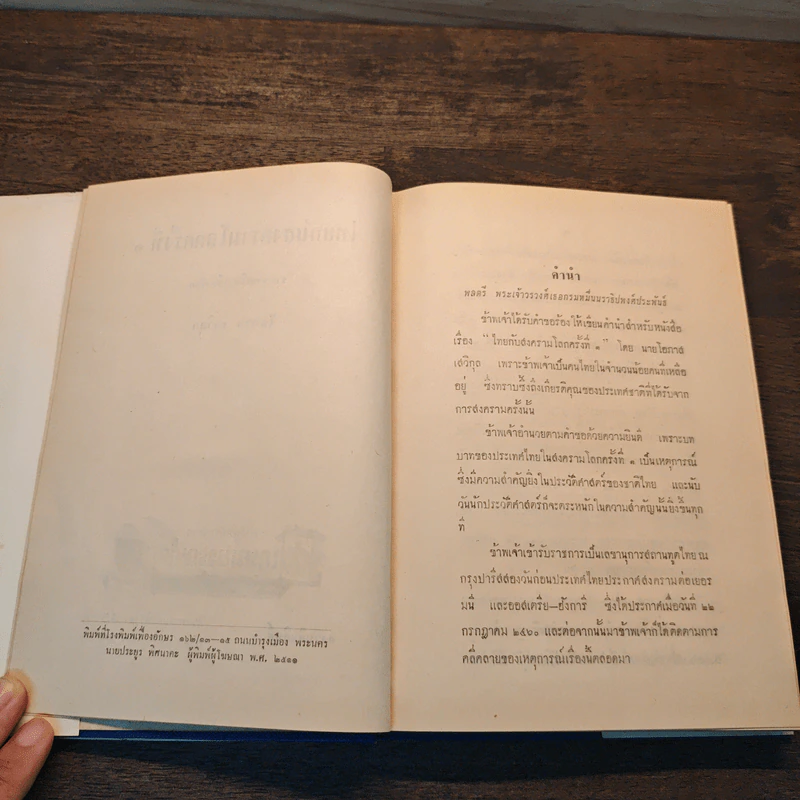 พิมพ์ที่โรงพิมพ์เฟื่องอักษร ๑๖๒/๑๓—๑๕ ถนนบำรุงเมือง พระนคร
นายประยูร พิศนาคะ ผู้พิมพ์ผู้โฆษณา พ.ศ. ๒๕๑๑
คำนำ
พลตรี พระเจ้าวรวงศ์เธอกรมหมื่นนราธิปพงศ์ประพันธ์
ข้าพเจ้าได้รับคำขอร้องให้เขียนคำนำสำหรับหนังสือ
เรื่อง “ไทยกับสงครามโลกครั้งที่ ๑” โดย นายโอภาส
เสวิกุล เพราะข้าพเจ้าเป็นคนไทยในจำนวนน้อยคนที่เหลือ
อยู่ ซึ่งทราบซึ้งถึงเกียรติคุณของประเทศชาติที่ได้รับจาก
การสงครามครั้งนั้น
ข้าพเจ้าอำนวยตามคำขอด้วยความยินดี เพราะบท
บาทของประเทศไทยในสงครามโลกครั้งที่ ๑ เป็นเหตุการณ์
ซึ่งมีความสำคัญยิ่งในประวัติศาสตร์ของชาติไทย และนับ
วันนักประวัติศาสตร์ก็จะตระหนักในความสำคัญนั้นยิ่งขึ้นทุก
ที
ข้าพเจ้าเข้ารับราชการเป็นเลขานุการสถานทูตไทย ณ
กรุงปารีสสองวันก่อนประเทศไทยประกาศสงครามต่อเยอร
มนี และออสเตรีย—ฮังการี ซึ่งได้ประกาศเมื่อวันที่ ๒๒
กรกฎาคม ๒๔๖๐ และต่อจากนั้นมาข้าพเจ้าก็ได้ติดตามการ
คลี่คลายของเหตุการณ์เรื่องนี้ตลอดมา